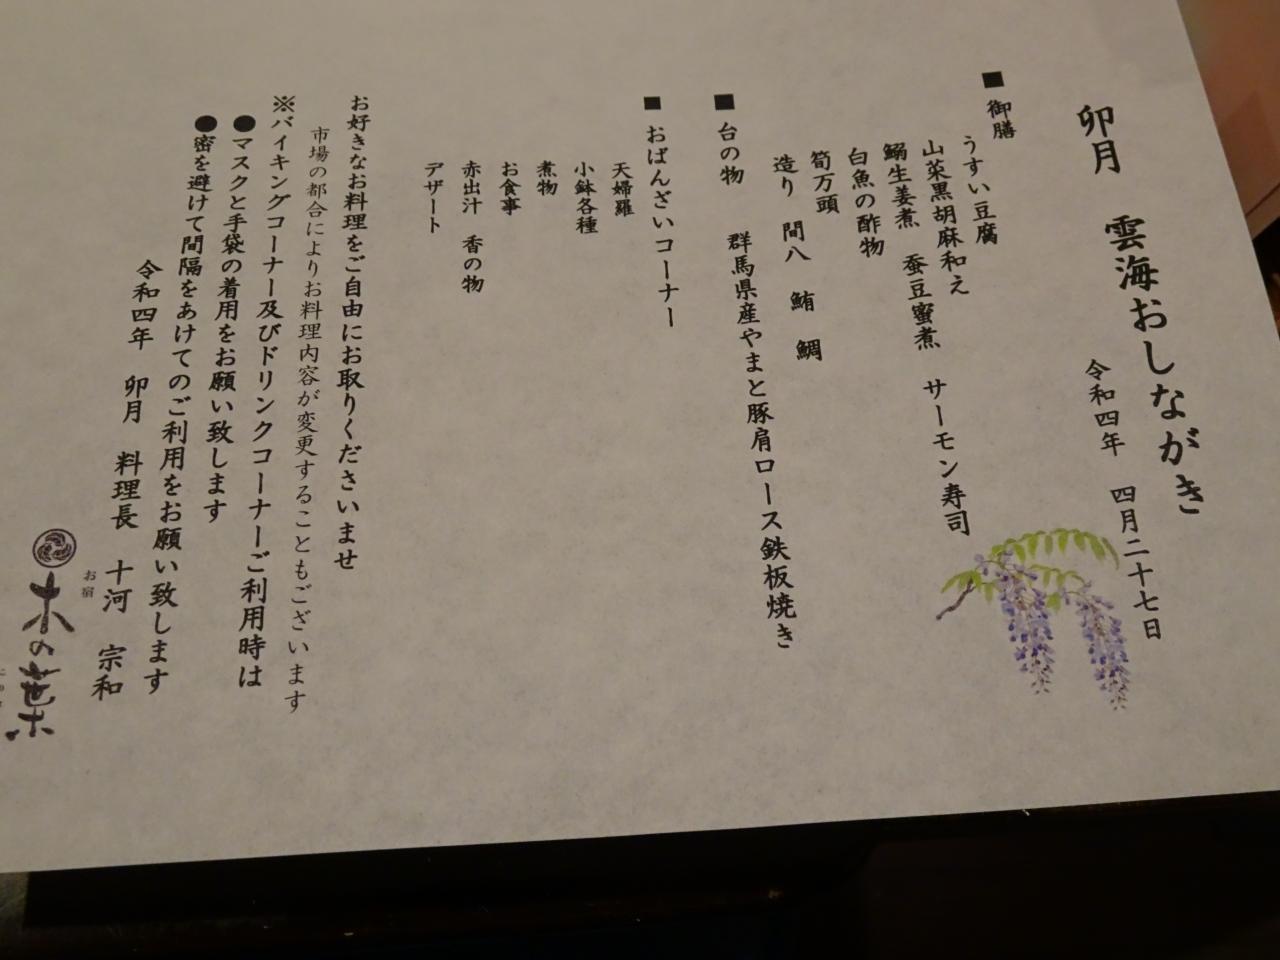 卯月　雲海おしながき
令和四年　四月二十七日
■ 御膳
うすい豆腐
山菜黒胡麻和え
鰯生姜煮　蚕豆蜜煮　サーモン寿司
白魚の酢物
筍万頭
造り　間八　鮪　鯛
■ 台の物　群馬県産やまと豚肩ロース鉄板焼き
■ おばんざいコーナー
天婦羅
小鉢各種
煮物
お食事
赤出汁　香の物
デザート
お好きなお料理をご自由にお取りくださいませ
市場の都合によりお料理内容が変更することもございます
※バイキングコーナー及びドリンクコーナーご利用時は
●マスクと手袋の着用をお願い致します
●密を避けて間隔をあけてのご利用をお願い致します
令和四年　卯月　料理長　十河　宗和
お宿
木の葉